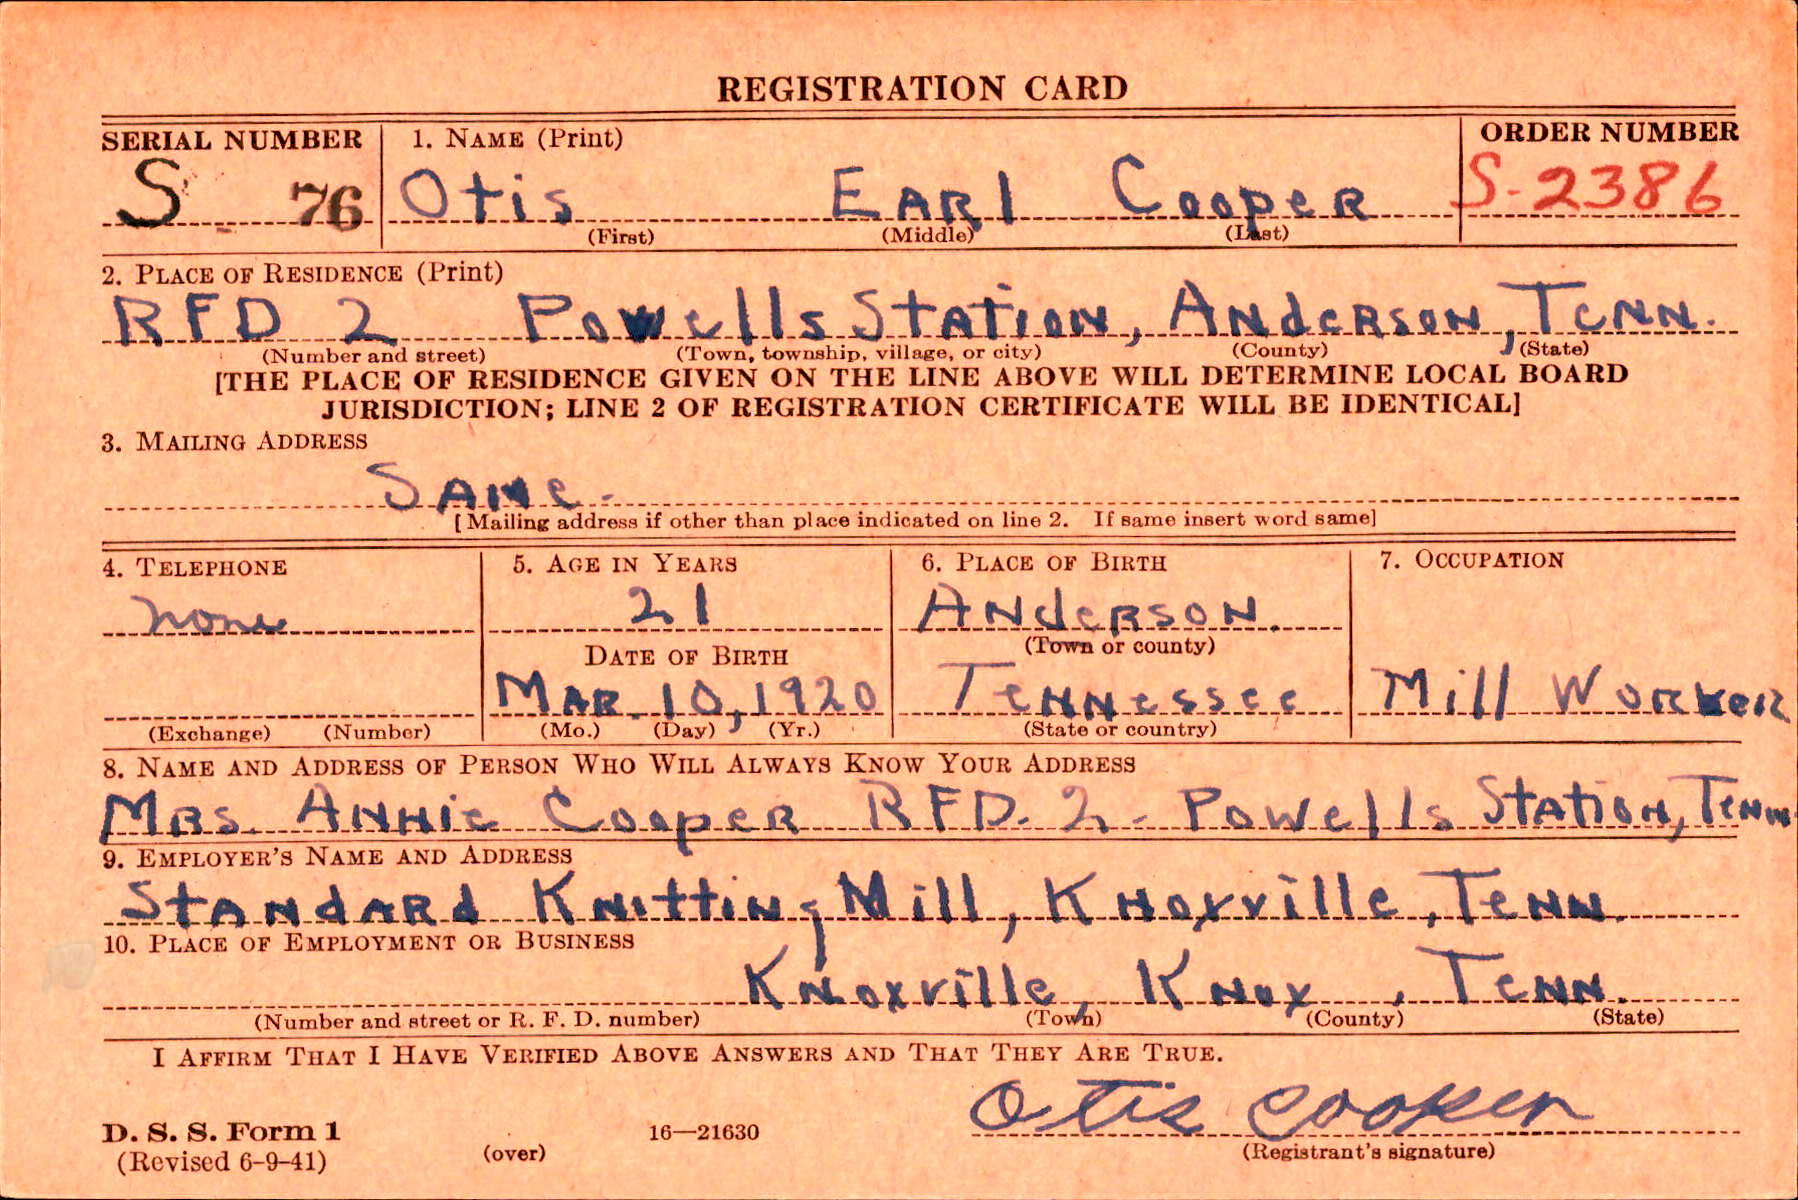 REGISTRATION CARD
SERIAL NUMBER 1. NAME (Print) ORDER NUMBER
S 76 Otis EARl Cooper S-2386
(First) (Middle) (Last)
2. PLACE OF RESIDENCE (Print)
RFD 2 Powells Station, Anderson, Tenn.
(Number and street) (Town, township, village, or city) (County) (State)
[THE PLACE OF RESIDENCE GIVEN ON THE LINE ABOVE WILL DETERMINE LOCAL BOARD
JURISDICTION; LINE 2 OF REGISTRATION CERTIFICATE WILL BE IDENTICAL]
3. MAILING ADDRESS
SAMe.
[Mailing address if other than place indicated on line 2. If same insert word same]
4. TELEPHONE 5. AGE IN YEARS 6. PLACE OF BIRTH 7. OCCUPATION
none 21 Anderson.
DATE OF BIRTH (Town or county)
MAR. 10, 1920 Tennessee Mill Worker
(Exchange) (Number) (Mo.) (Day) (Yr.) (State or country)
8. NAME AND ADDRESS OF PERSON WHO WILL ALWAYS KNOW YOUR ADDRESS
MRS. Annie Cooper RFD. 2 - Powells Station, Tenn.
9. EMPLOYER'S NAME AND ADDRESS
Standard Knitting Mill, Knoxville, Tenn.
10. PLACE OF EMPLOYMENT OR BUSINESS
Knoxville, Knox, Tenn.
(Number and street or R. F. D. number) (Town) (County) (State)
I AFFIRM THAT I HAVE VERIFIED ABOVE ANSWERS AND THAT THEY ARE TRUE.
Otis Cooper
D. S. S. Form 1 16—21630
(Revised 6-9-41) (over) (Registrant's signature)